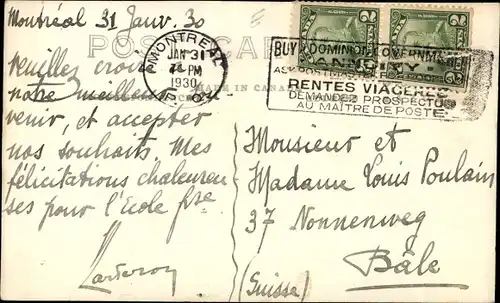 Montréal 31 Janv. 30
POST CARD
MONTREAL
JAN 31
PM
1930
P.Q.
BUY DOMINION GOVERNMENT
ANNUITY
ASK POSTMASTER
RENTES VIAGERES
DEMANDEZ PROSPECTUS
AU MAÎTRE DE POSTE
2 2
MADE IN CANADA
Veuillez croire
notre meilleur
venir, et accepter
nos souhaits. Mes
félicitations chaleureu
ses pour l'Ecole fse
Monsieur et
Madame Louis Poulain
37 Nonnenweg
Bâle
(Suisse)